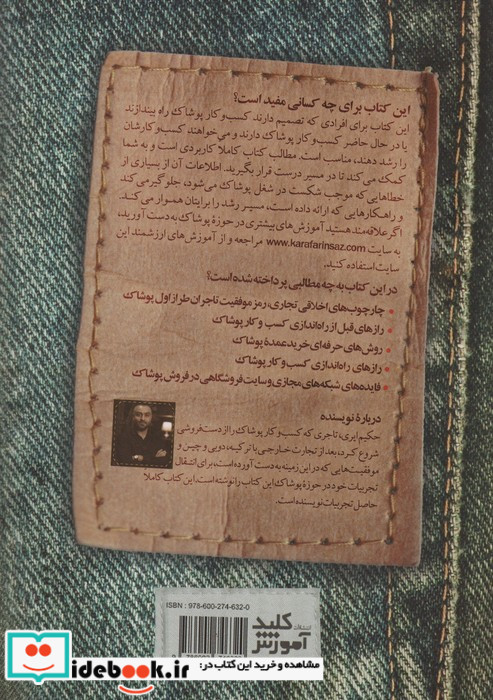 این کتاب برای چه کسانی مفید است؟
این کتاب برای افرادی که تصمیم دارند کسب‌وکار پوشاک راه بیندازند
یا در حال حاضر کسب‌وکار پوشاک دارند و می‌خواهند کسب‌وکارشان
را رشد دهند، مناسب است. مطالب کتاب کاملا کاربردی است و به شما
کمک می‌کند تا در مسیر درست قرار بگیرید. اطلاعات آن از بسیاری از
خطاهایی که موجب شکست در شغل پوشاک می‌شود، جلوگیری می‌کند
و راهکارهایی که ارائه داده است، مسیر رشد را برایتان هموار می‌کند.
اگر علاقه‌مند هستید آموزش‌های بیشتری در حوزهٔ پوشاک به دست آورید،
به سایت www.karafarinsaz.com مراجعه و از آموزش‌های ارزشمند این
سایت استفاده کنید.
در این کتاب به چه مطالبی پرداخته شده است؟
• چارچوب‌های اخلاقی تجاری، رمز موفقیت تاجران طراز اول پوشاک
• رازهای قبل از راه‌اندازی کسب و کار پوشاک
• روش‌های حرفه‌ای خرید عمدهٔ پوشاک
• رازهای راه‌اندازی کسب و کار پوشاک
• فایده‌های شبکه‌های مجازی و سایت فروشگاهی در فروش پوشاک
دربارهٔ نویسنده
حکیم ایری، تاجری که کسب و کار پوشاک را از دست‌فروشی
شروع کرد، بعد از تجارت خارجی با ترکیه، دوبی و چین و
موفقیت‌هایی که در این زمینه به دست آورده است، برای انتقال
تجربیات خود در حوزهٔ پوشاک این کتاب را نوشته است. این کتاب کاملا
حاصل تجربیات نویسنده است.
ISBN : 978-600-274-632-0
انتشارات
کلید
آموزش
idebook.ir
مشاهده و خرید این کتاب در: